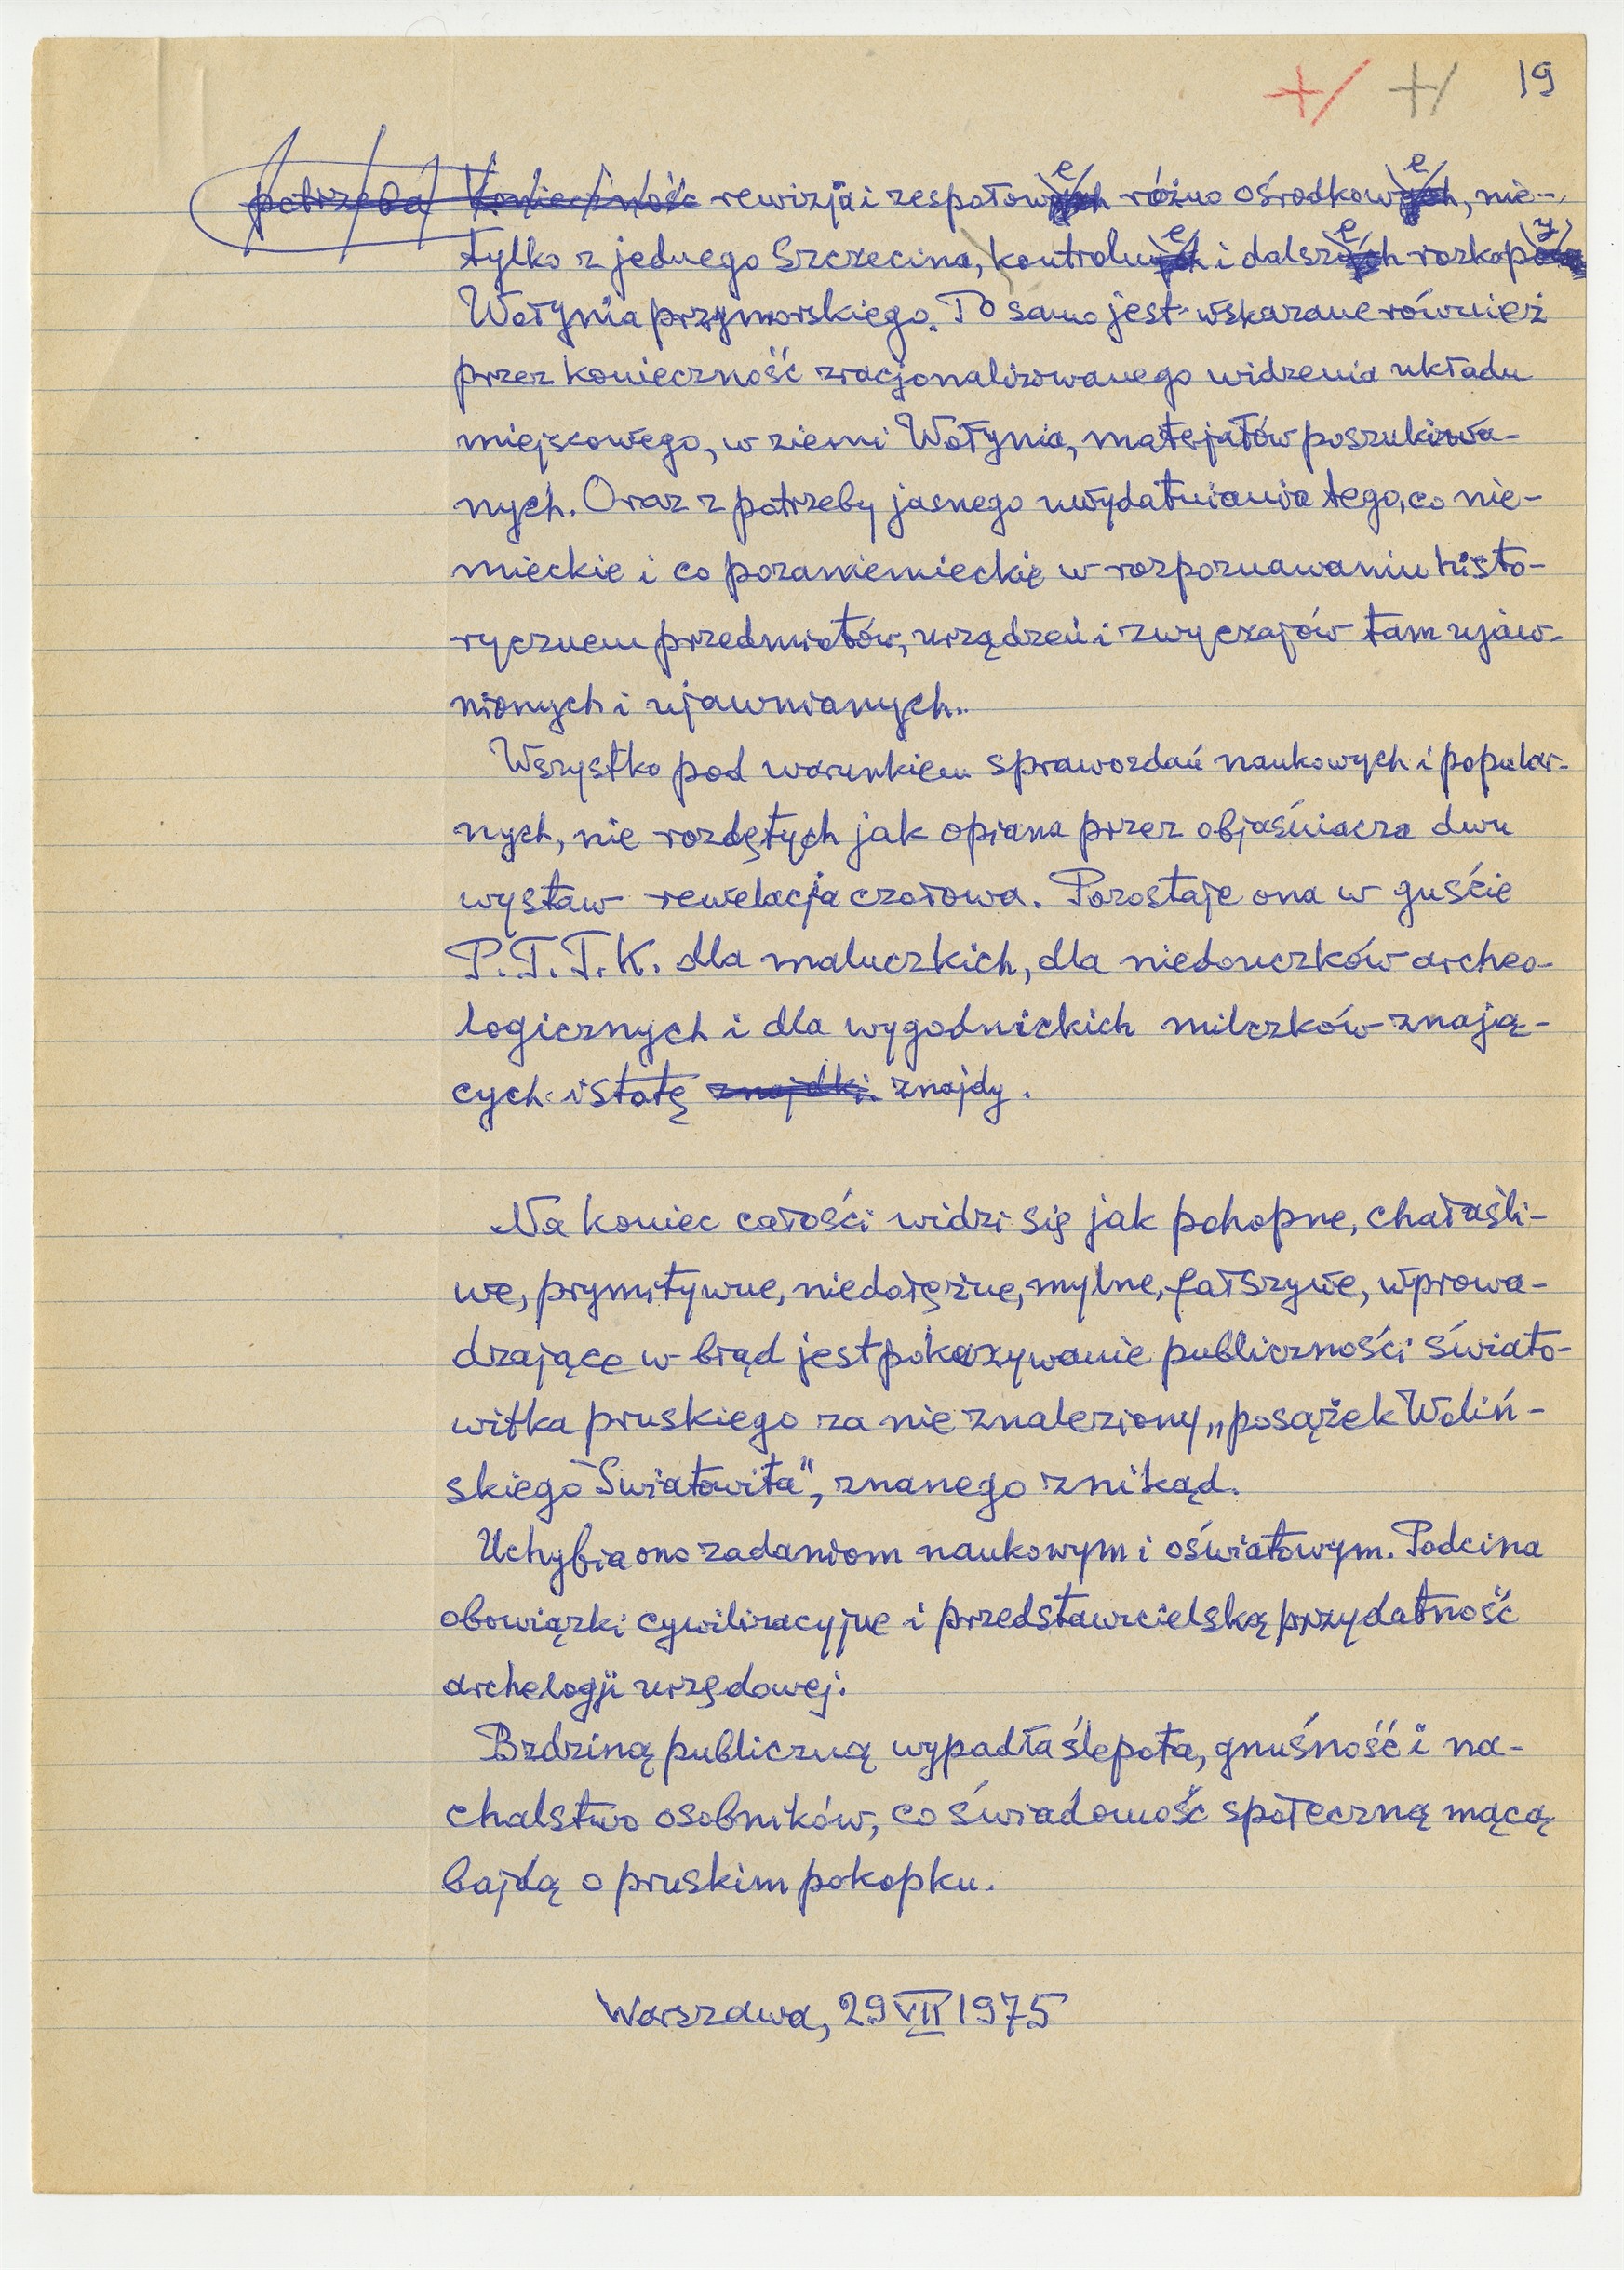 +/ +/ 19
potrzeba Konieczność rewizja i zespołowe różno ośrodkowe, nie-
tylko z jednego Szczecina, kontrolne i dalsze rozkopy
Wołynia przymorskiego. To samo jest wskazane również
przez konieczność zracjonalizowanego widzenia układu
miejscowego, w ziemi Wołynia, materjałów poszukiwa-
nych. Oraz z potrzeby jasnego uwydatniania tego, co nie-
mieckie i co pozaniemieckie w rozpoznawaniu histo-
rycznem przedmiotów, urządzeń i zwyczajów tam ujaw-
nionych i ujawnianych.
Wszystko pod warunkiem sprawozdań naukowych i popular-
nych, nie rozdętych jak opiana przez objaśniacza dwu
wystaw rewelacja czołowa. Pozostaje ona w guście
P.T.T.K. dla maluczkich, dla niedouczków archeo-
logicznych i dla wygodnickich milczków znają-
cych istotę znajdki. znajdy.
Na koniec całości widzi się jak pohopne, chałaśli-
we, prymitywne, niedołężne, mylne, fałszywe, wprowa-
dzające w brąd jest pokazywanie publiczności świato-
witka pruskiego za nie znaleziony „posążek Woliń-
skiego Światowita", znanego znikąd.
Uchybia ono zadaniom naukowym i oświatowym. Podcina
obowiązki cywilizacyjne i przedstawicielską przydatność
archelogji urzędowej.
Bzdziną publiczną wypadła ślepota, gnuśność i na-
chalstwo osobników, co świadomość społeczną mącą
bajdą o pruskim pokopku.
Warszawa, 29 VII 1975